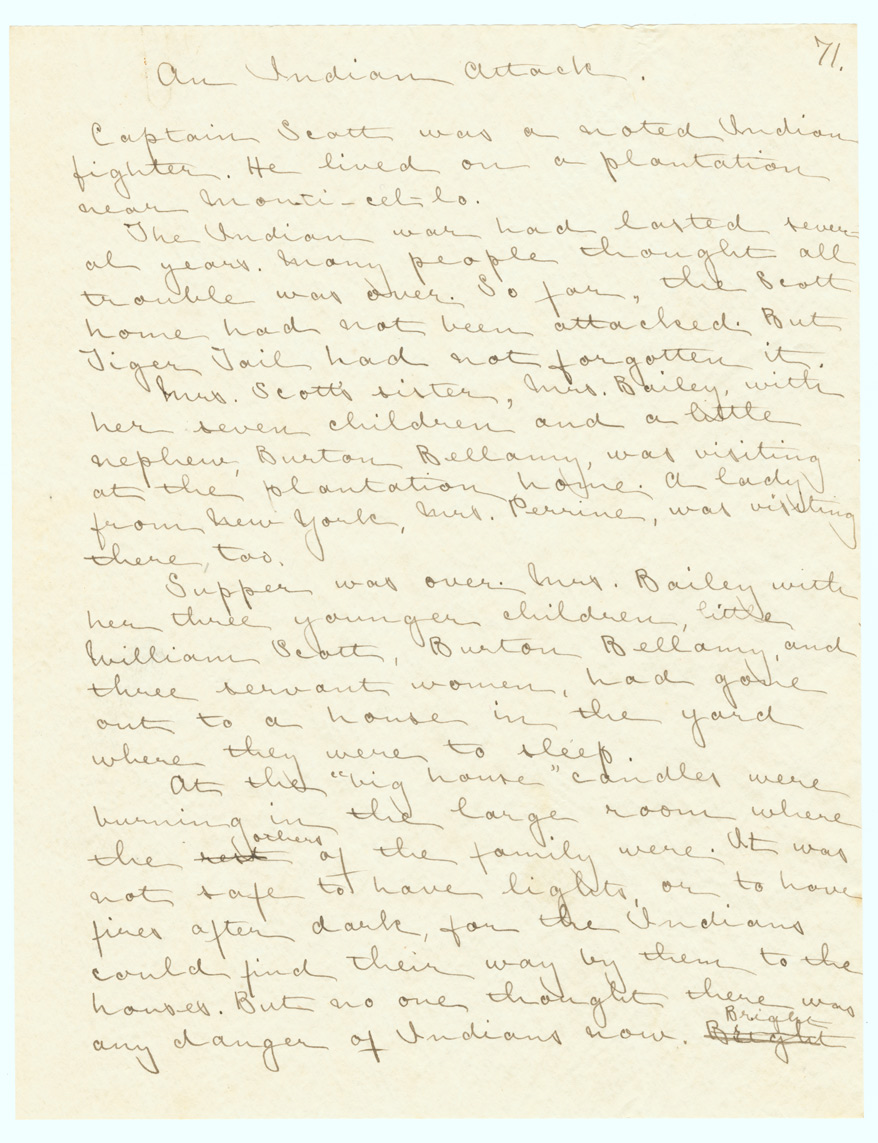 71.
An Indian Attack.
Captain Scott was a noted Indian
fighter. He lived on a plantation
near Monti-cel-lo.
The Indian war had lasted sever-
al years. Many people thought all
trouble was over. So far, the Scott
home had not been attacked. But
Tiger Tail had not forgotten it.
Mrs. Scott's sister, Mrs. Bailey, with
her seven children and a little
nephew, Burton Bellamy, was visiting
at the plantation home. A lady
from New York, Mrs. Perrine, was visiting
there, too.
Supper was over. Mrs. Bailey with
her three younger children, little
William Scott, Burton Bellamy, and
three servant women, had gone
out to a house in the yard
where they were to sleep.
At the "big house" candles were
burning in the large room where
others
the rest of the family were. It was
not safe to have lights, or to have
fires after dark, for the Indians
could find their way by them to the
houses. But no one thought there was
Bright
any danger of Indians now. Bright